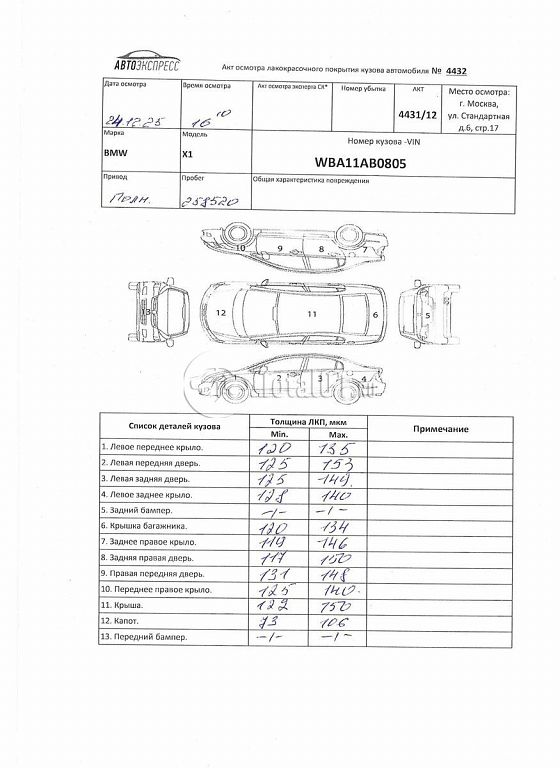 АВТОЭКСПРЕСС
Акт осмотра лакокрасочного покрытия кузова автомобиля № 4432
Дата осмотра Время осмотра Акт осмотра эксперта СК* Номер убытка АКТ Место осмотра:
24.12.25 16 10 4431/12 г. Москва,
ул. Стандартная
д.6, стр.17
Марка Модель Номер кузова -VIN
BMW X1 WBA11AB0805
Привод Пробег Общая характеристика повреждения
Полн. 258520
10 9 8 7
13 12 11 6 5
1 2 3 4
Список деталей кузова Толщина ЛКП, мкм Примечание
Min. Max.
1. Левое переднее крыло. 120 135
2. Левая передняя дверь. 125 153
3. Левая задняя дверь. 125 149.
4. Левое заднее крыло. 128 140
5. Задний бампер. -/- -/-
6. Крышка багажника. 120 134
7. Заднее правое крыло. 119 146
8. Задняя правая дверь. 117 150
9. Правая передняя дверь. 131 148
10. Переднее правое крыло. 125 140.
11. Крыша. 122 150
12. Капот. 93 106
13. Передний бампер. -/- -/-